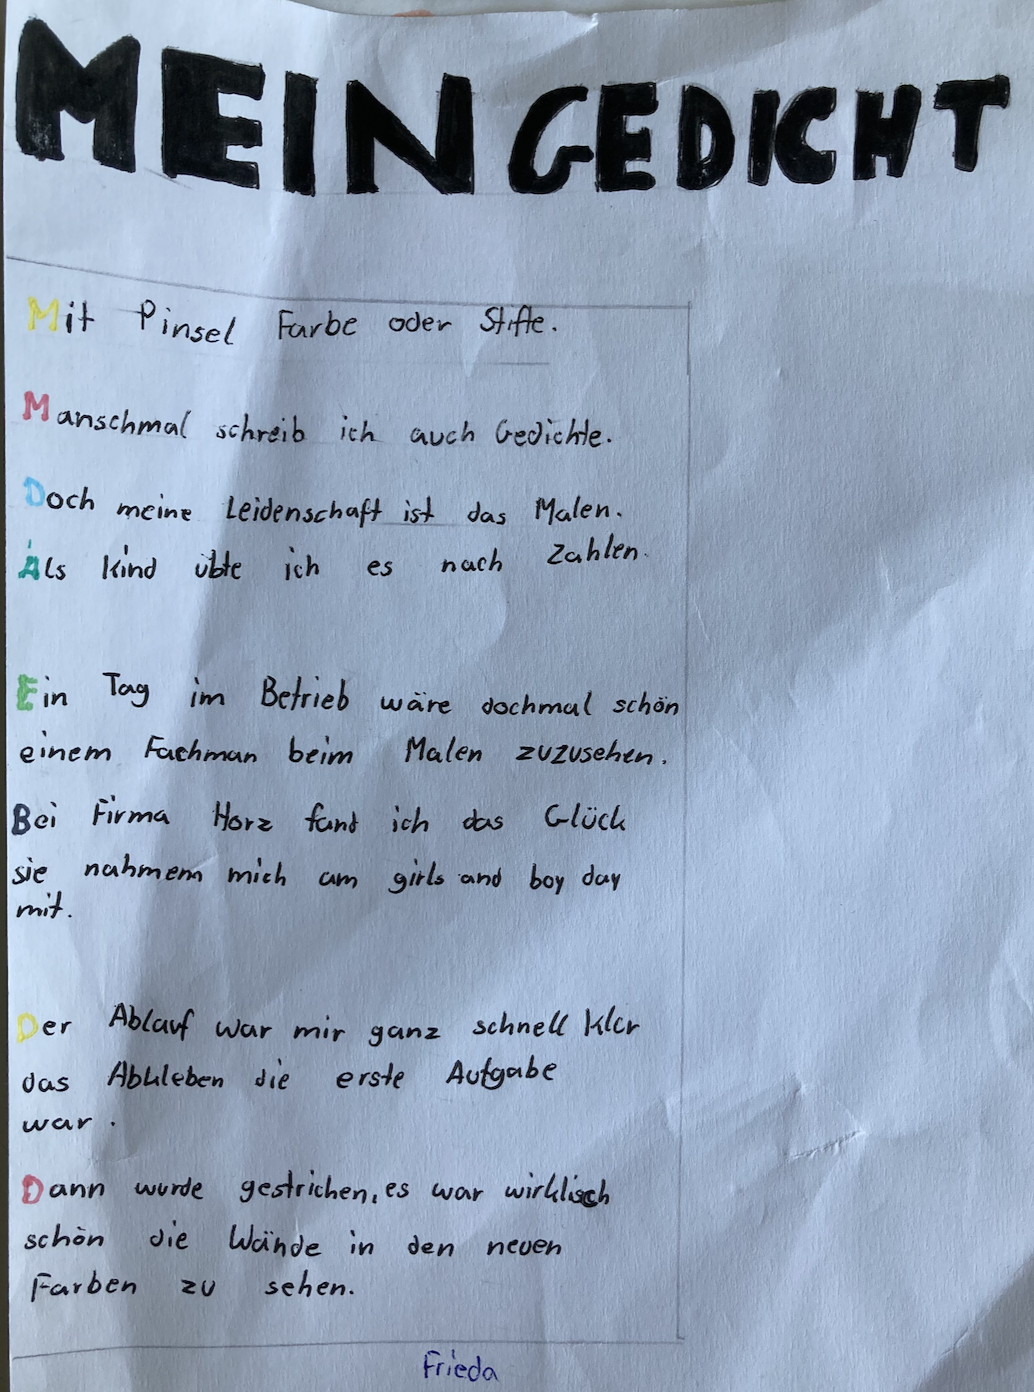 MEIN GEDICHT
Mit Pinsel Farbe oder Stifte.
Manschmal schreib ich auch Gedichte.
Doch meine Leidenschaft ist das Malen.
Als Kind übte ich es nach Zahlen.
Ein Tag im Betrieb wäre dochmal schön
einem Fachman beim Malen zuzusehen.
Bei Firma Horz fand ich das Glück
sie nahmem mich am girls and boy day
mit.
Der Ablauf war mir ganz schnell klar
das Abkleben die erste Aufgabe
war.
Dann wurde gestrichen, es war wirklisch
schön die Wände in den neuen
Farben zu sehen.
Frieda